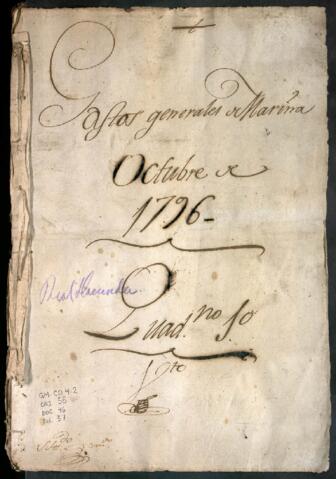 Gastos generales de Marina
Octubre de
1796
Real Hacienda
Quad.no 10
GM CO 4.2
CAJ 55
DOC 46
Fol 37